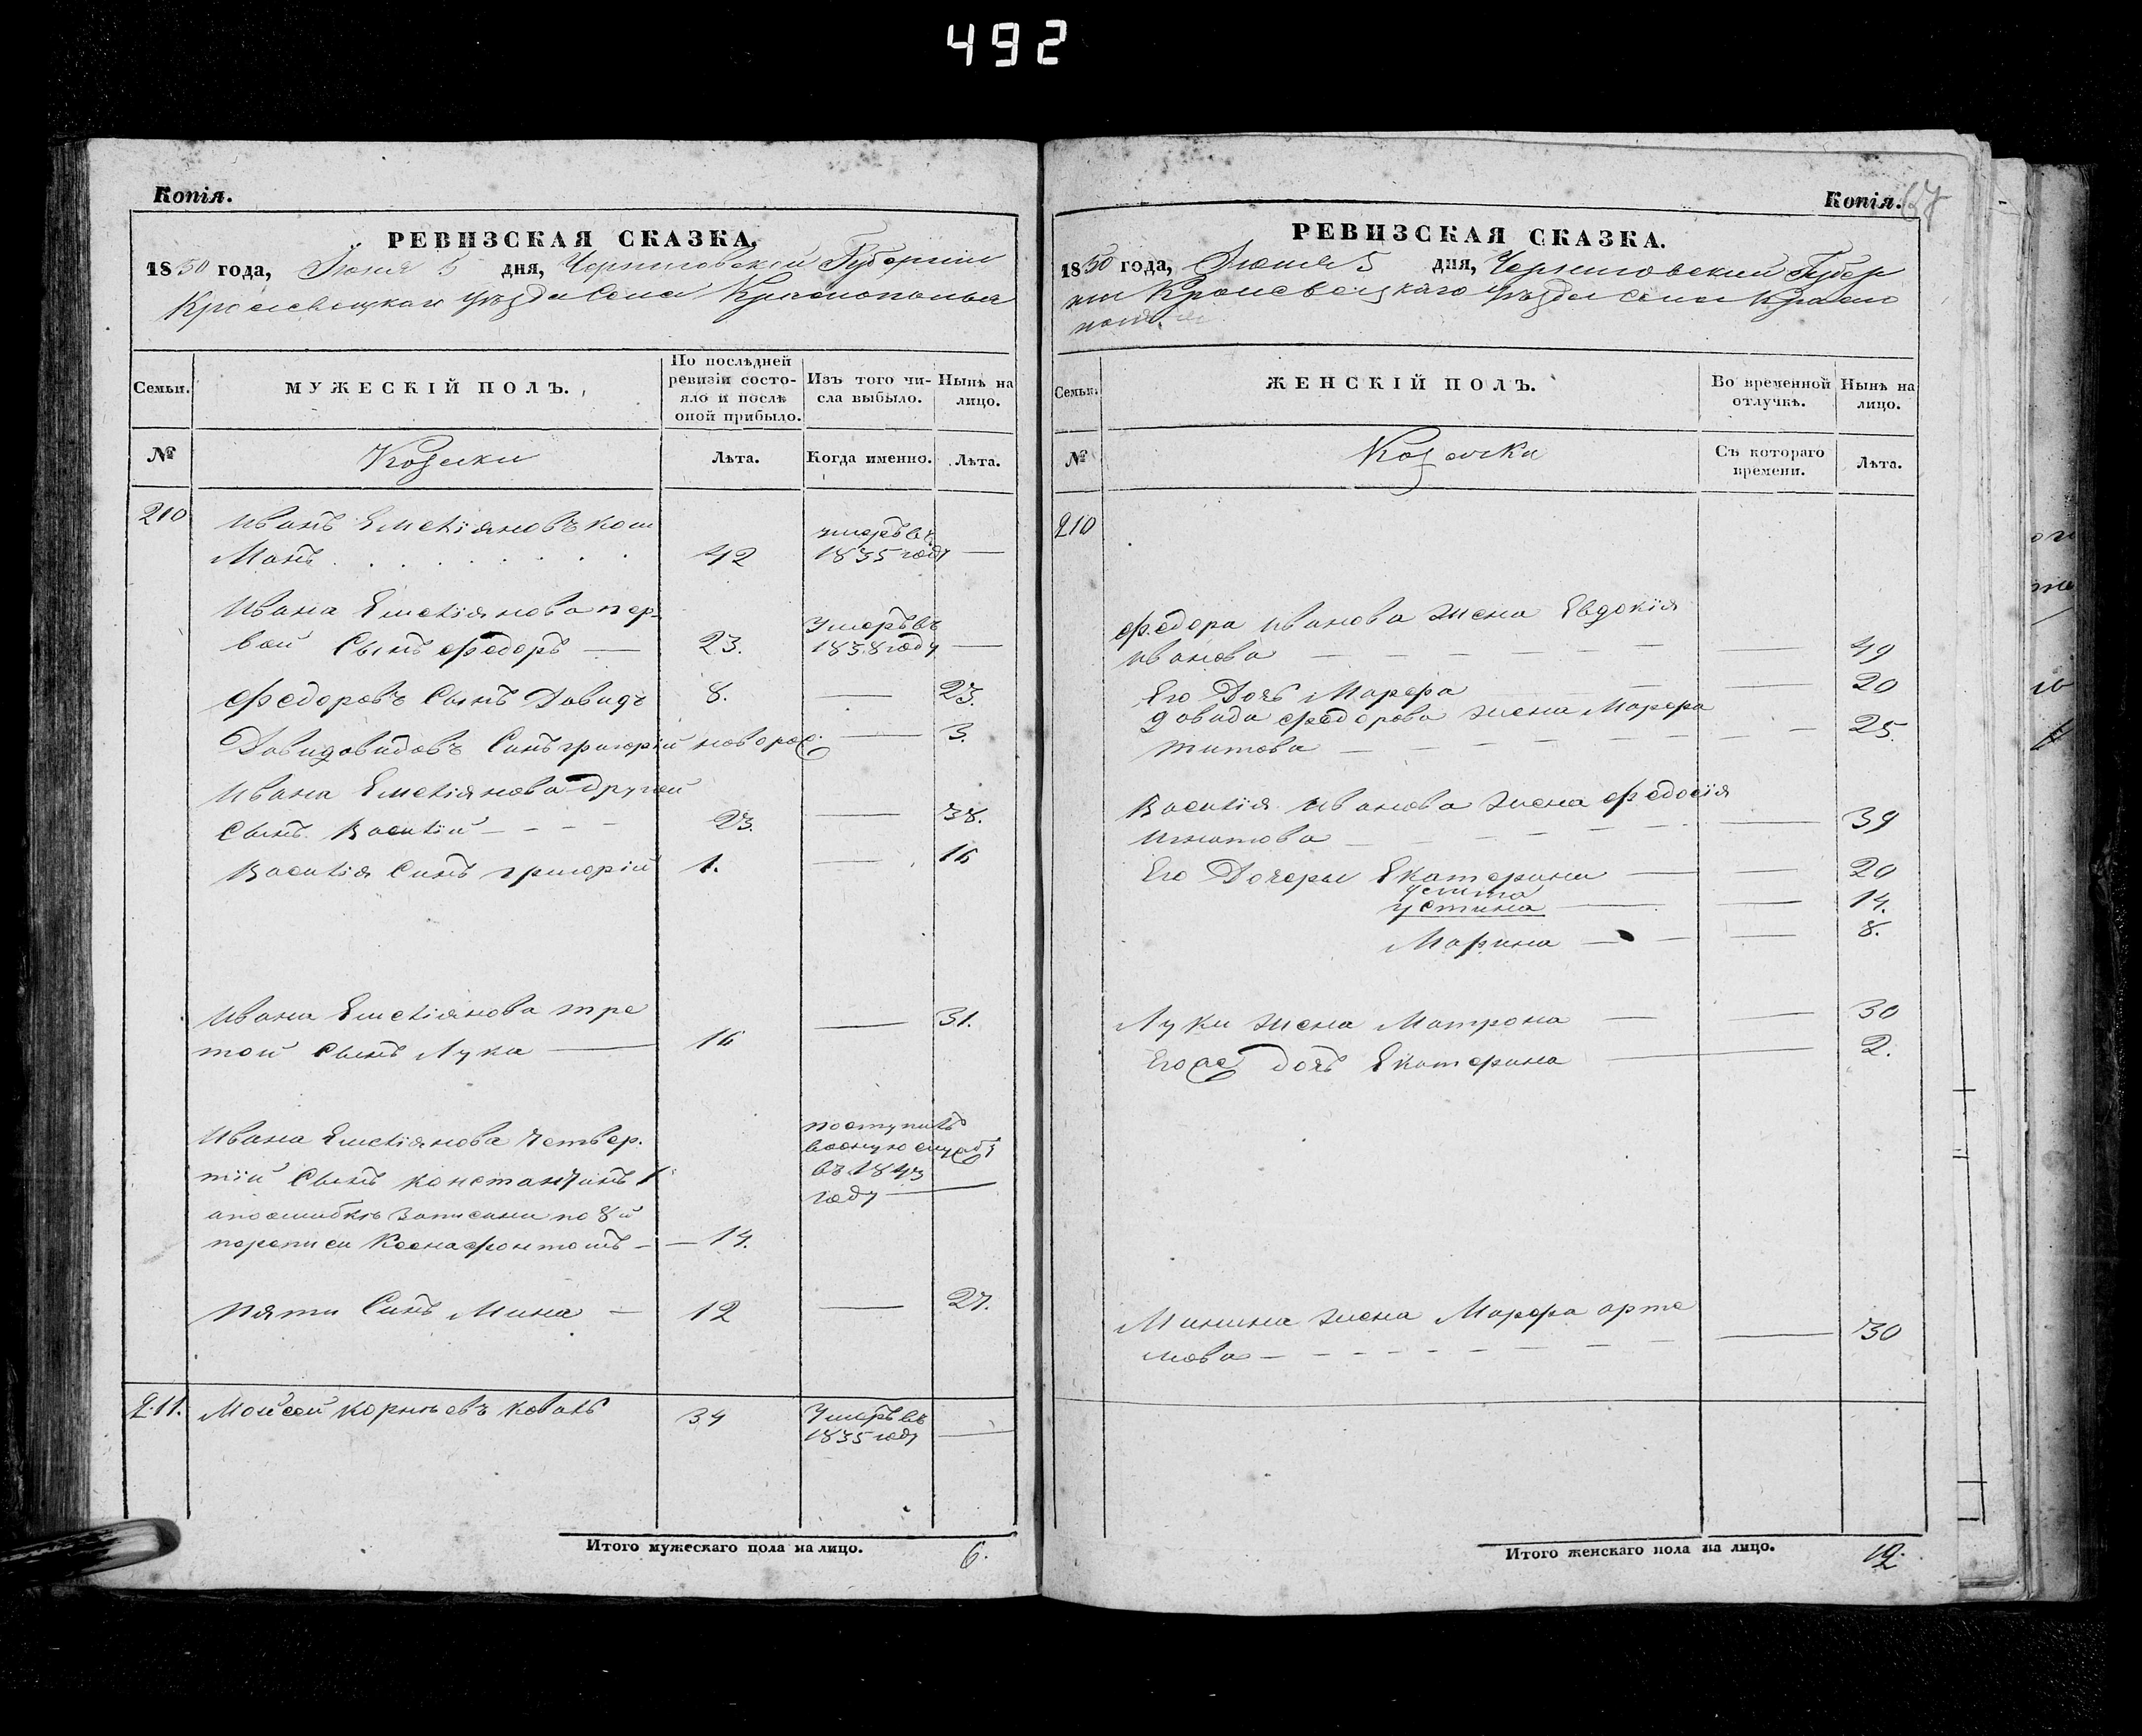 492
Копія.
РЕВИЗСКАЯ СКАЗКА.
1850 года, Іюня 5 дня, Черниговской Губерніи
Кролевецкаго уѣзда Села Краснополья
Семьи.
МУЖЕСКІЙ ПОЛЪ.
По послѣдней ревизіи состояло и послѣ оной прибыло.
Изъ того числа выбыло.
Нынѣ на лицо.
№
Козаки
Лѣта.
Когда именно.
Лѣта.
210
Иванъ Емеліяновъ
42
умеръ въ
1835 году —
Ивана Емеліянова пер
вой Сынъ Федоръ —
23.
Умеръ въ
1838 году —
Федоровъ Сынъ Давидъ 8. — 23.
Сынъ григорій новорож: — 3.
Ивана Емеліянова Другой
Сынъ Василій — — — — 23. — 38.
Василія Синъ григорій 1. — 16
Ивана Емеліянова тре
той Сынъ Лука — 16 — 31.
Ивана Емеліянова Четвер.
тій Сынъ Константинъ
поступилъ
военную службу
въ 1843
году —
а по ошибкѣ Записанъ по 8й
переписи — — 14.
Пяти Синъ Мина — 12 — 27.
211. Мойсей Корнѣевъ Коваль 34
Умеръ въ
1835 году —
Итого мужескаго пола на лицо. 6.
Копія.
67
РЕВИЗСКАЯ СКАЗКА.
1850 года, Іюня 5 дня, Черниговской Губер
ніи Кролевецкаго уѣзда Села Красно
полья
Семьи.
ЖЕНСКІЙ ПОЛЪ.
Во временной отлучкѣ.
Нынѣ на лицо.
№
Козачки
Съ котораго времени.
Лѣта.
210
Федора Иванова Жена Евдокія
Иванова — — — — — — — 49
Его Дочь Марфа — — 20
Давида Федорова Жена Марфа
Титова — — — — — — — 25.
Василія Иванова Жена Федосія
Игнатова — — — — — — 39
Его Дочеры Екатерина — — 20
Улита
Устина — — 14.
Марина — — — 8.
Луки Жена Матрона — — 30
Егоже дочь Екатерина — 2.
Минина Жена Марфа Арте
мова — — — — — — — — 30
Итого женскаго пола на лицо. 12.